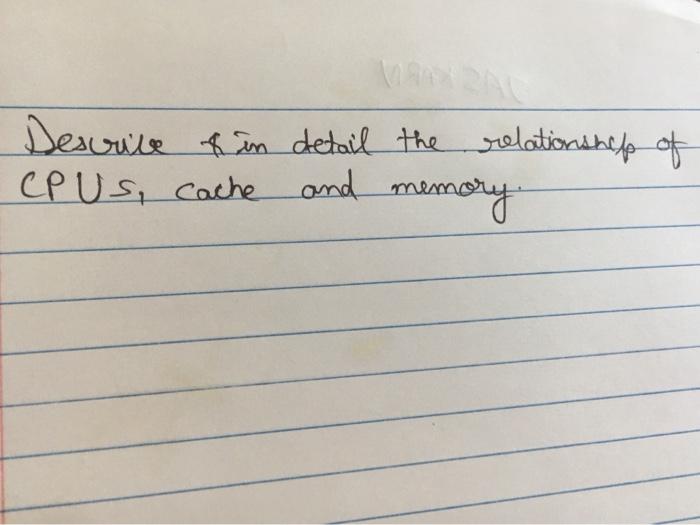 JASKARN
Describe & in detail the relationship of
CPUS, cache and memory.